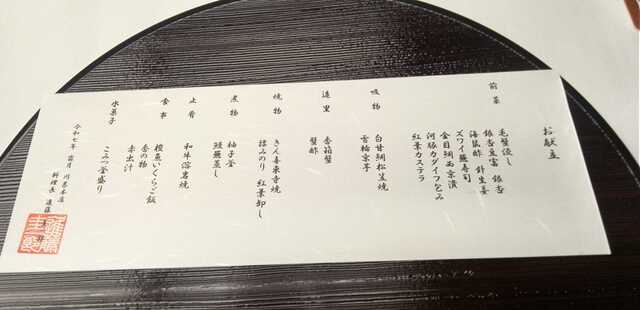 お献立
前菜
毛蟹浸し
銀杏豆富 銀杏
海鼠酢 針生姜
ズワイ蟹寿司
金目鯛西京漬
河豚カダイフ包み
紅葉カステラ
吸物
白甘鯛松笠焼
京芋
造里
香箱蟹
蟹酢
焼物
揉みのり 紅葉卸し
煮物
柚子釜
蕪蒸し
止肴
和牛溶岩焼
食事
いくらご飯
香の物
赤出汁
水菓子
こみつ釜盛り
令和七年 霜月 本店
料理長 遠藤